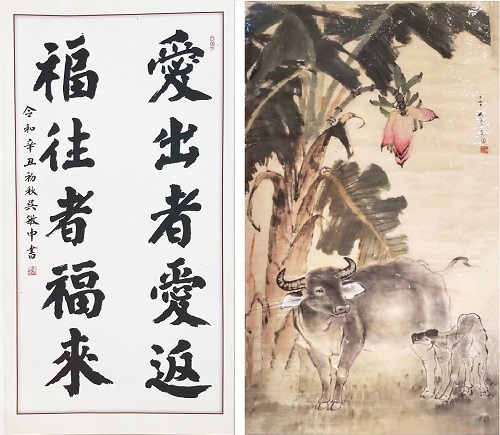 愛出者愛返
福往者福來
令和辛丑初秋吳敏中書